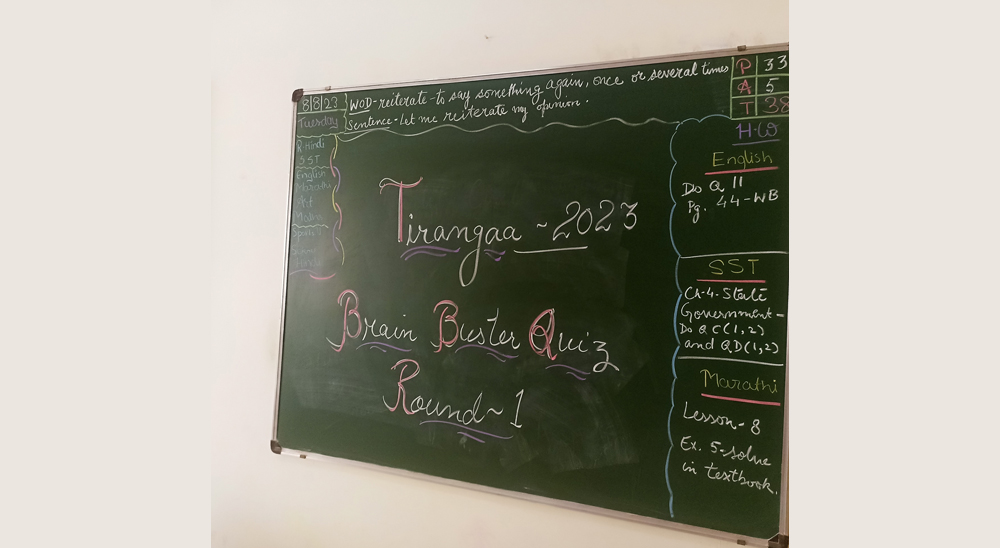 8|8|23
Tuesday
WOD-reiterate-to say something again, once or several times
Sentence-Let me reiterate my opinion.
P 33
A 5
T 38
R.Hindi
SST
English
Marathi
Art
Maths
Tirangaa ~ 2023
Brain Buster Quiz
Round~1
H.W
English
Do Q II
Pg. 44-WB
SST
Ch-4-State
Government-
Do Q C(1,2)
and QD(1,2)
Marathi
Lesson-8
Ex. 5-solve
in textbook.